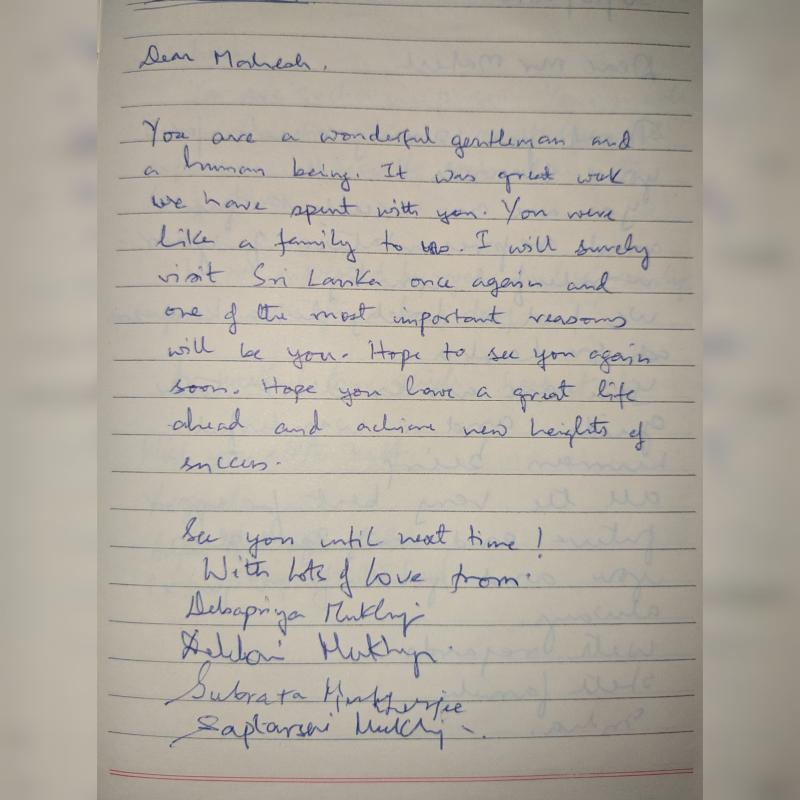 Dear Mahesh,
You are a wonderful gentleman and
a human being. It was great week
we have spent with you. You were
like a family to us. I will surely
visit Sri Lanka once again and
one of the most important reasons
will be you. Hope to see you again
soon. Hope you have a great life
ahead and achieve new heights of
success.
See you until next time!
With lots of love from:
Debapriya Mukherji
Mukherji
Subrata Mukherjee
Saptarshi Mukherji